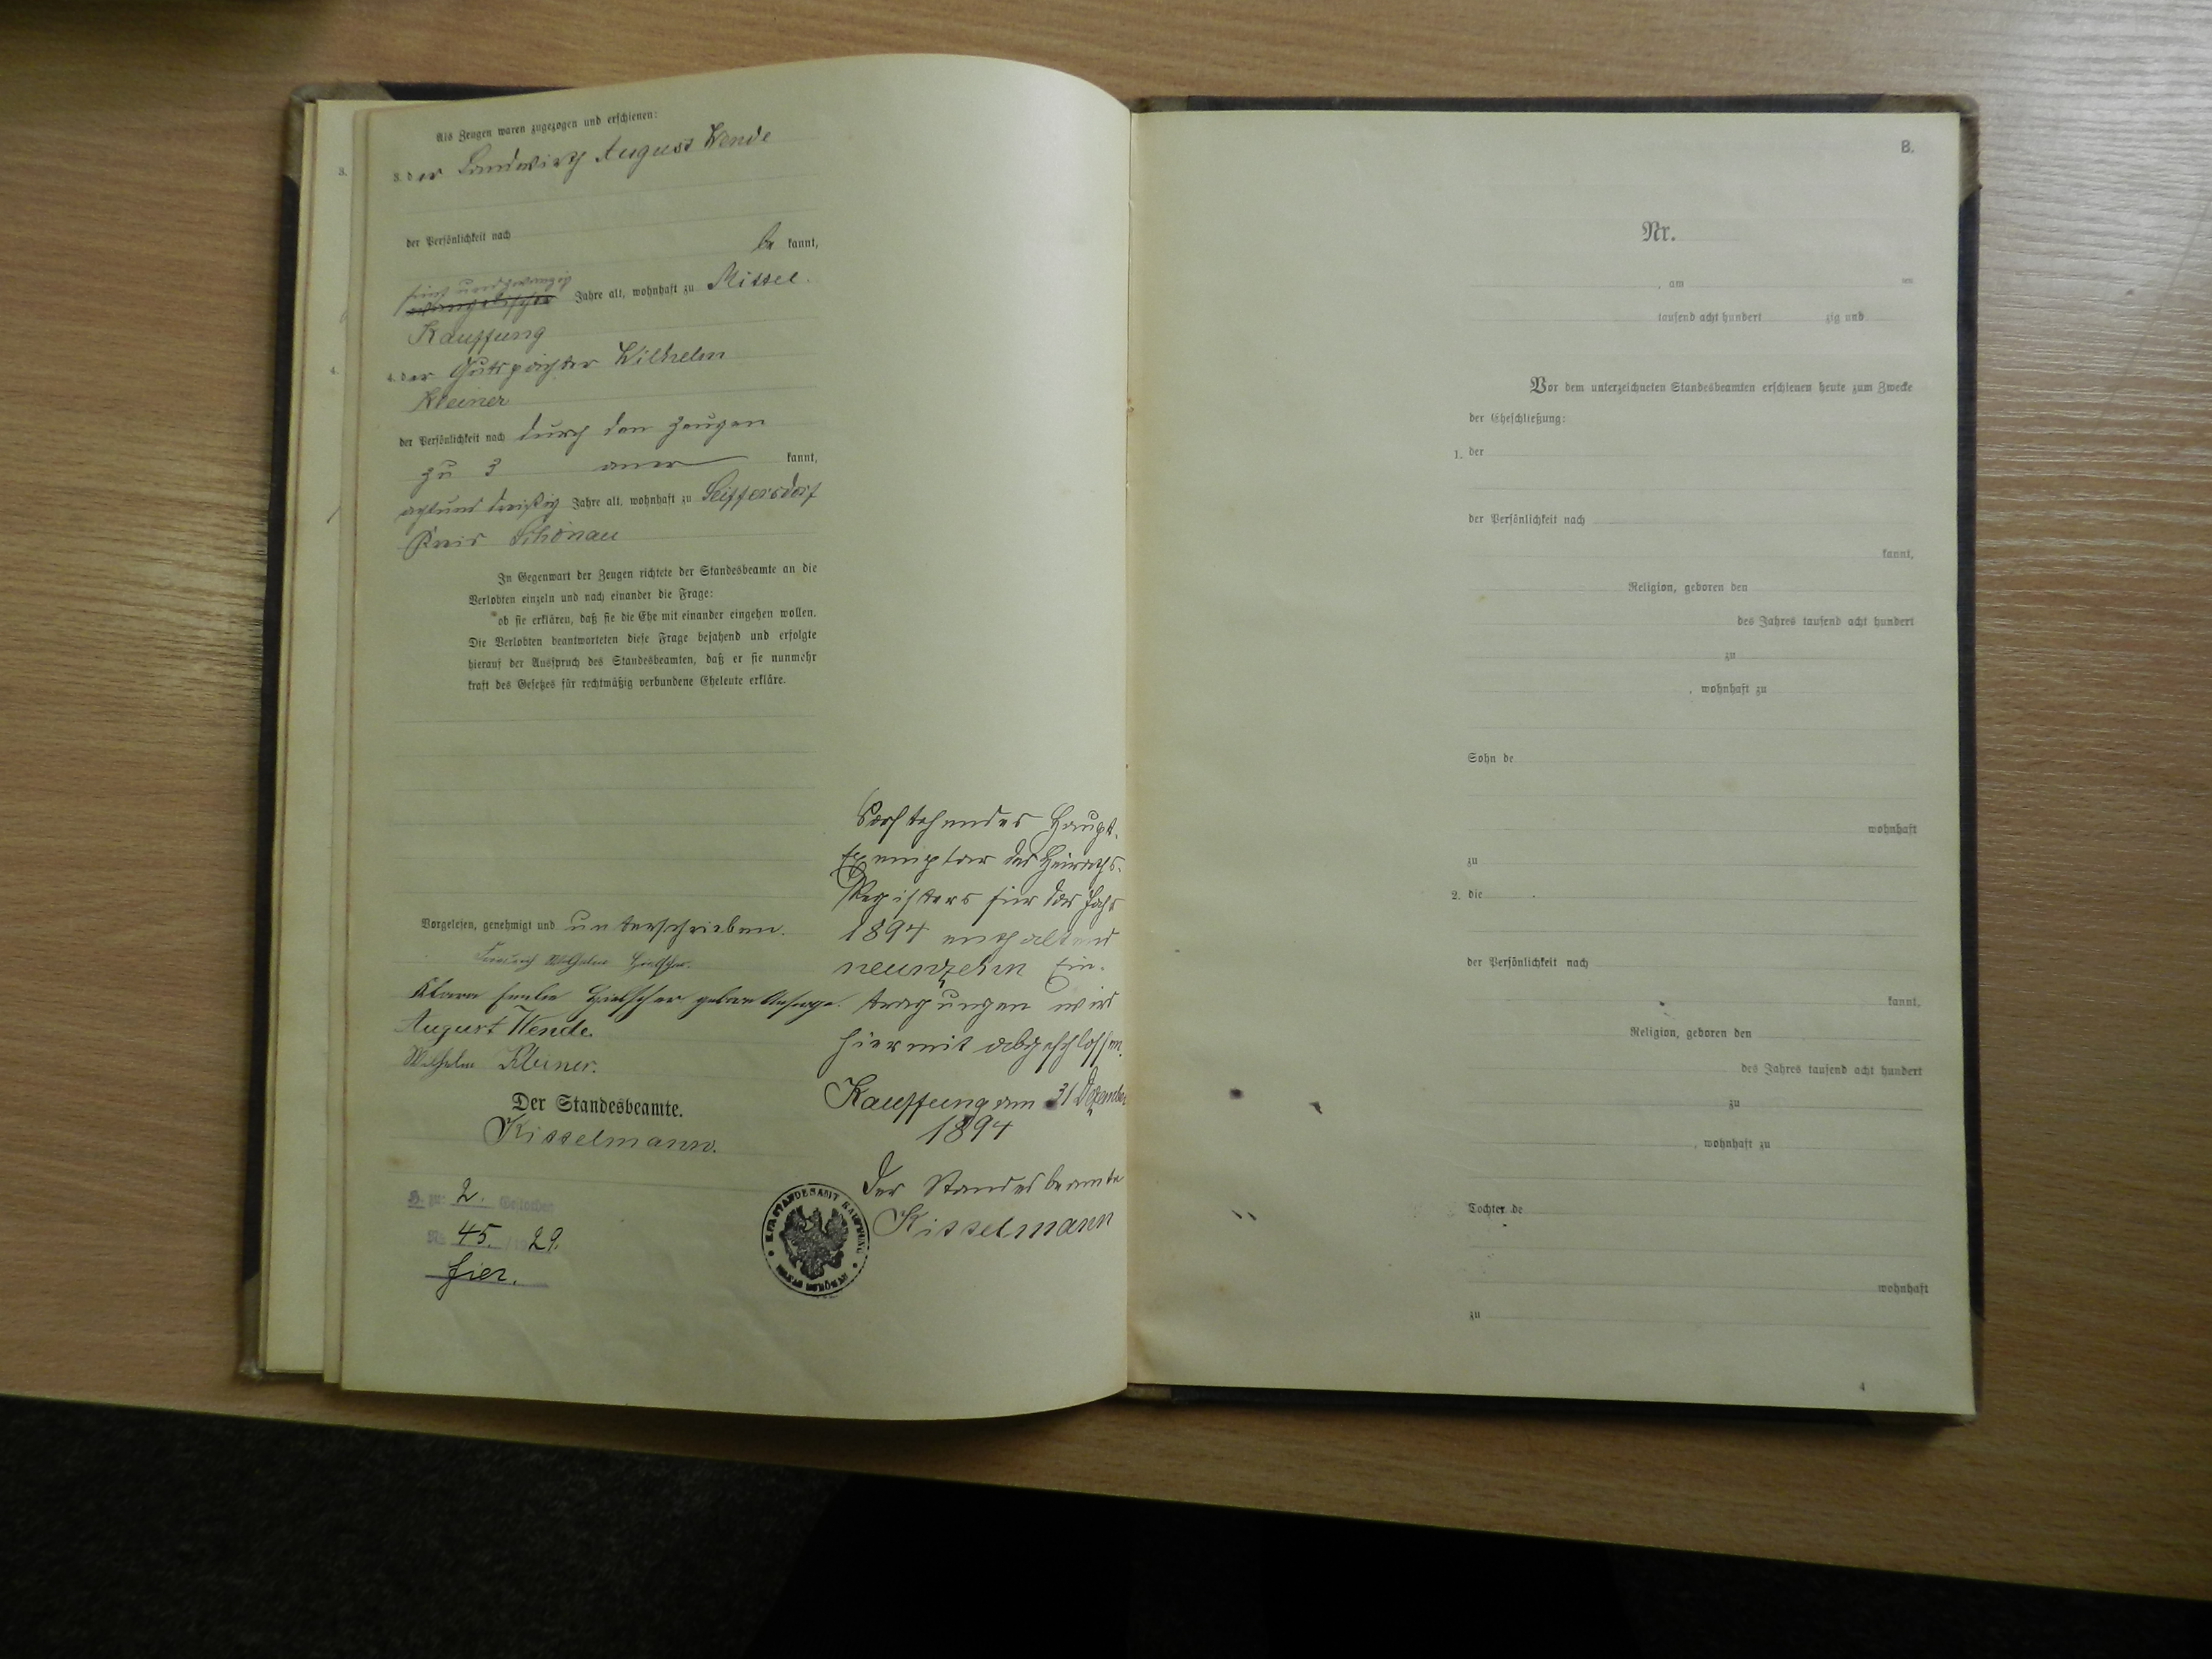 Als Zeugen waren zugezogen und erschienen:
3.
3. der Landwirth August Wende
der Persönlichkeit nach
be kannt,
fünf und zwanzig
Jahre alt, wohnhaft zu Mittel
Kauffung
4.
4. der Gutspächter Wilhelm
Kleiner
der Persönlichkeit nach durch den Zeugen
zu 3 aner kannt,
achtund dreißig Jahre alt, wohnhaft zu Seiffersdorf
Kreis Schönau
In Gegenwart der Zeugen richtete der Standesbeamte an die
Verlobten einzeln und nach einander die Frage:
ob sie erklären, daß sie die Ehe mit einander eingehen wollen.
Die Verlobten beantworteten diese Frage bejahend und erfolgte
hierauf der Ausspruch des Standesbeamten, daß er sie nunmehr
kraft des Gesetzes für rechtmäßig verbundene Eheleute erkläre.
Vorgelesen, genehmigt und unterschrieben.
Friedrich Wilhelm Hielscher.
Klara Hielscher geborne
August Wende
Wilhelm Kleiner.
Der Standesbeamte.
Kisselmann.
H. zu: 2.
Nr. 45. 29.
hier.
Vorstehendes Haupt-
Exemplar des Heiraths-
Registers für das Jahr
1894 enthaltend
neunzehn Ein-
tragungen wird
hiermit abgeschlossen.
Kauffung am 31 Dezember
1894
Der Standesbeamte
Kisselmann
STANDESAMT KAUFFUNG
KREIS SCHÖNAU
B.
Nr.
, am ten
tausend acht hundert zig und
Vor dem unterzeichneten Standesbeamten erschienen heute zum Zwecke
der Eheschließung:
1. der
der Persönlichkeit nach
kannt,
Religion, geboren den
des Jahres tausend acht hundert
zu
, wohnhaft zu
Sohn de
wohnhaft
zu
2. die
der Persönlichkeit nach
kannt,
Religion, geboren den
des Jahres tausend acht hundert
zu
, wohnhaft zu
Tochter de
wohnhaft
zu
4